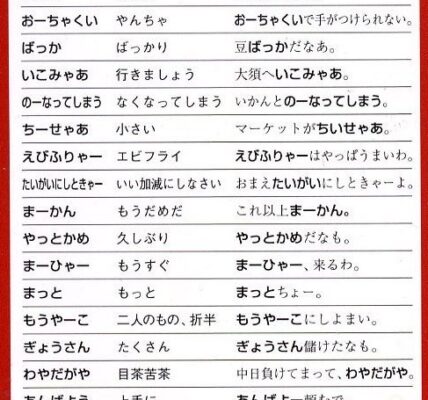 おーちゃくい　やんちゃ　おーちゃくいで手がつけられない。
ばっか　ばっかり　豆ばっかだなあ。
いこみゃあ　行きましょう　大須へいこみゃあ。
のーなってしまう　なくなってしまう　いかんとのーなってしまう。
ちーせゃあ　小さい　マーケットがちいせゃあ。
えびふりゃー　エビフライ　えびふりゃーはやっぱうまいわ。
たいがいにしときゃー　いい加減にしなさい　おまえたいがいにしときゃーよ。
まーかん　もうだめだ　これ以上まーかん。
やっとかめ　久しぶり　やっとかめだなも。
まーひゃー　もうすぐ　まーひゃー、来るわ。
まっと　もっと　まっとちょー。
もうやーこ　二人のもの、折半　もうやーこにしよまい。
ぎょうさん　たくさん　ぎょうさん儲けたなも。
わやだがや　目茶苦茶　中日負けてまって、わやだがや。
あんばよう　上手に